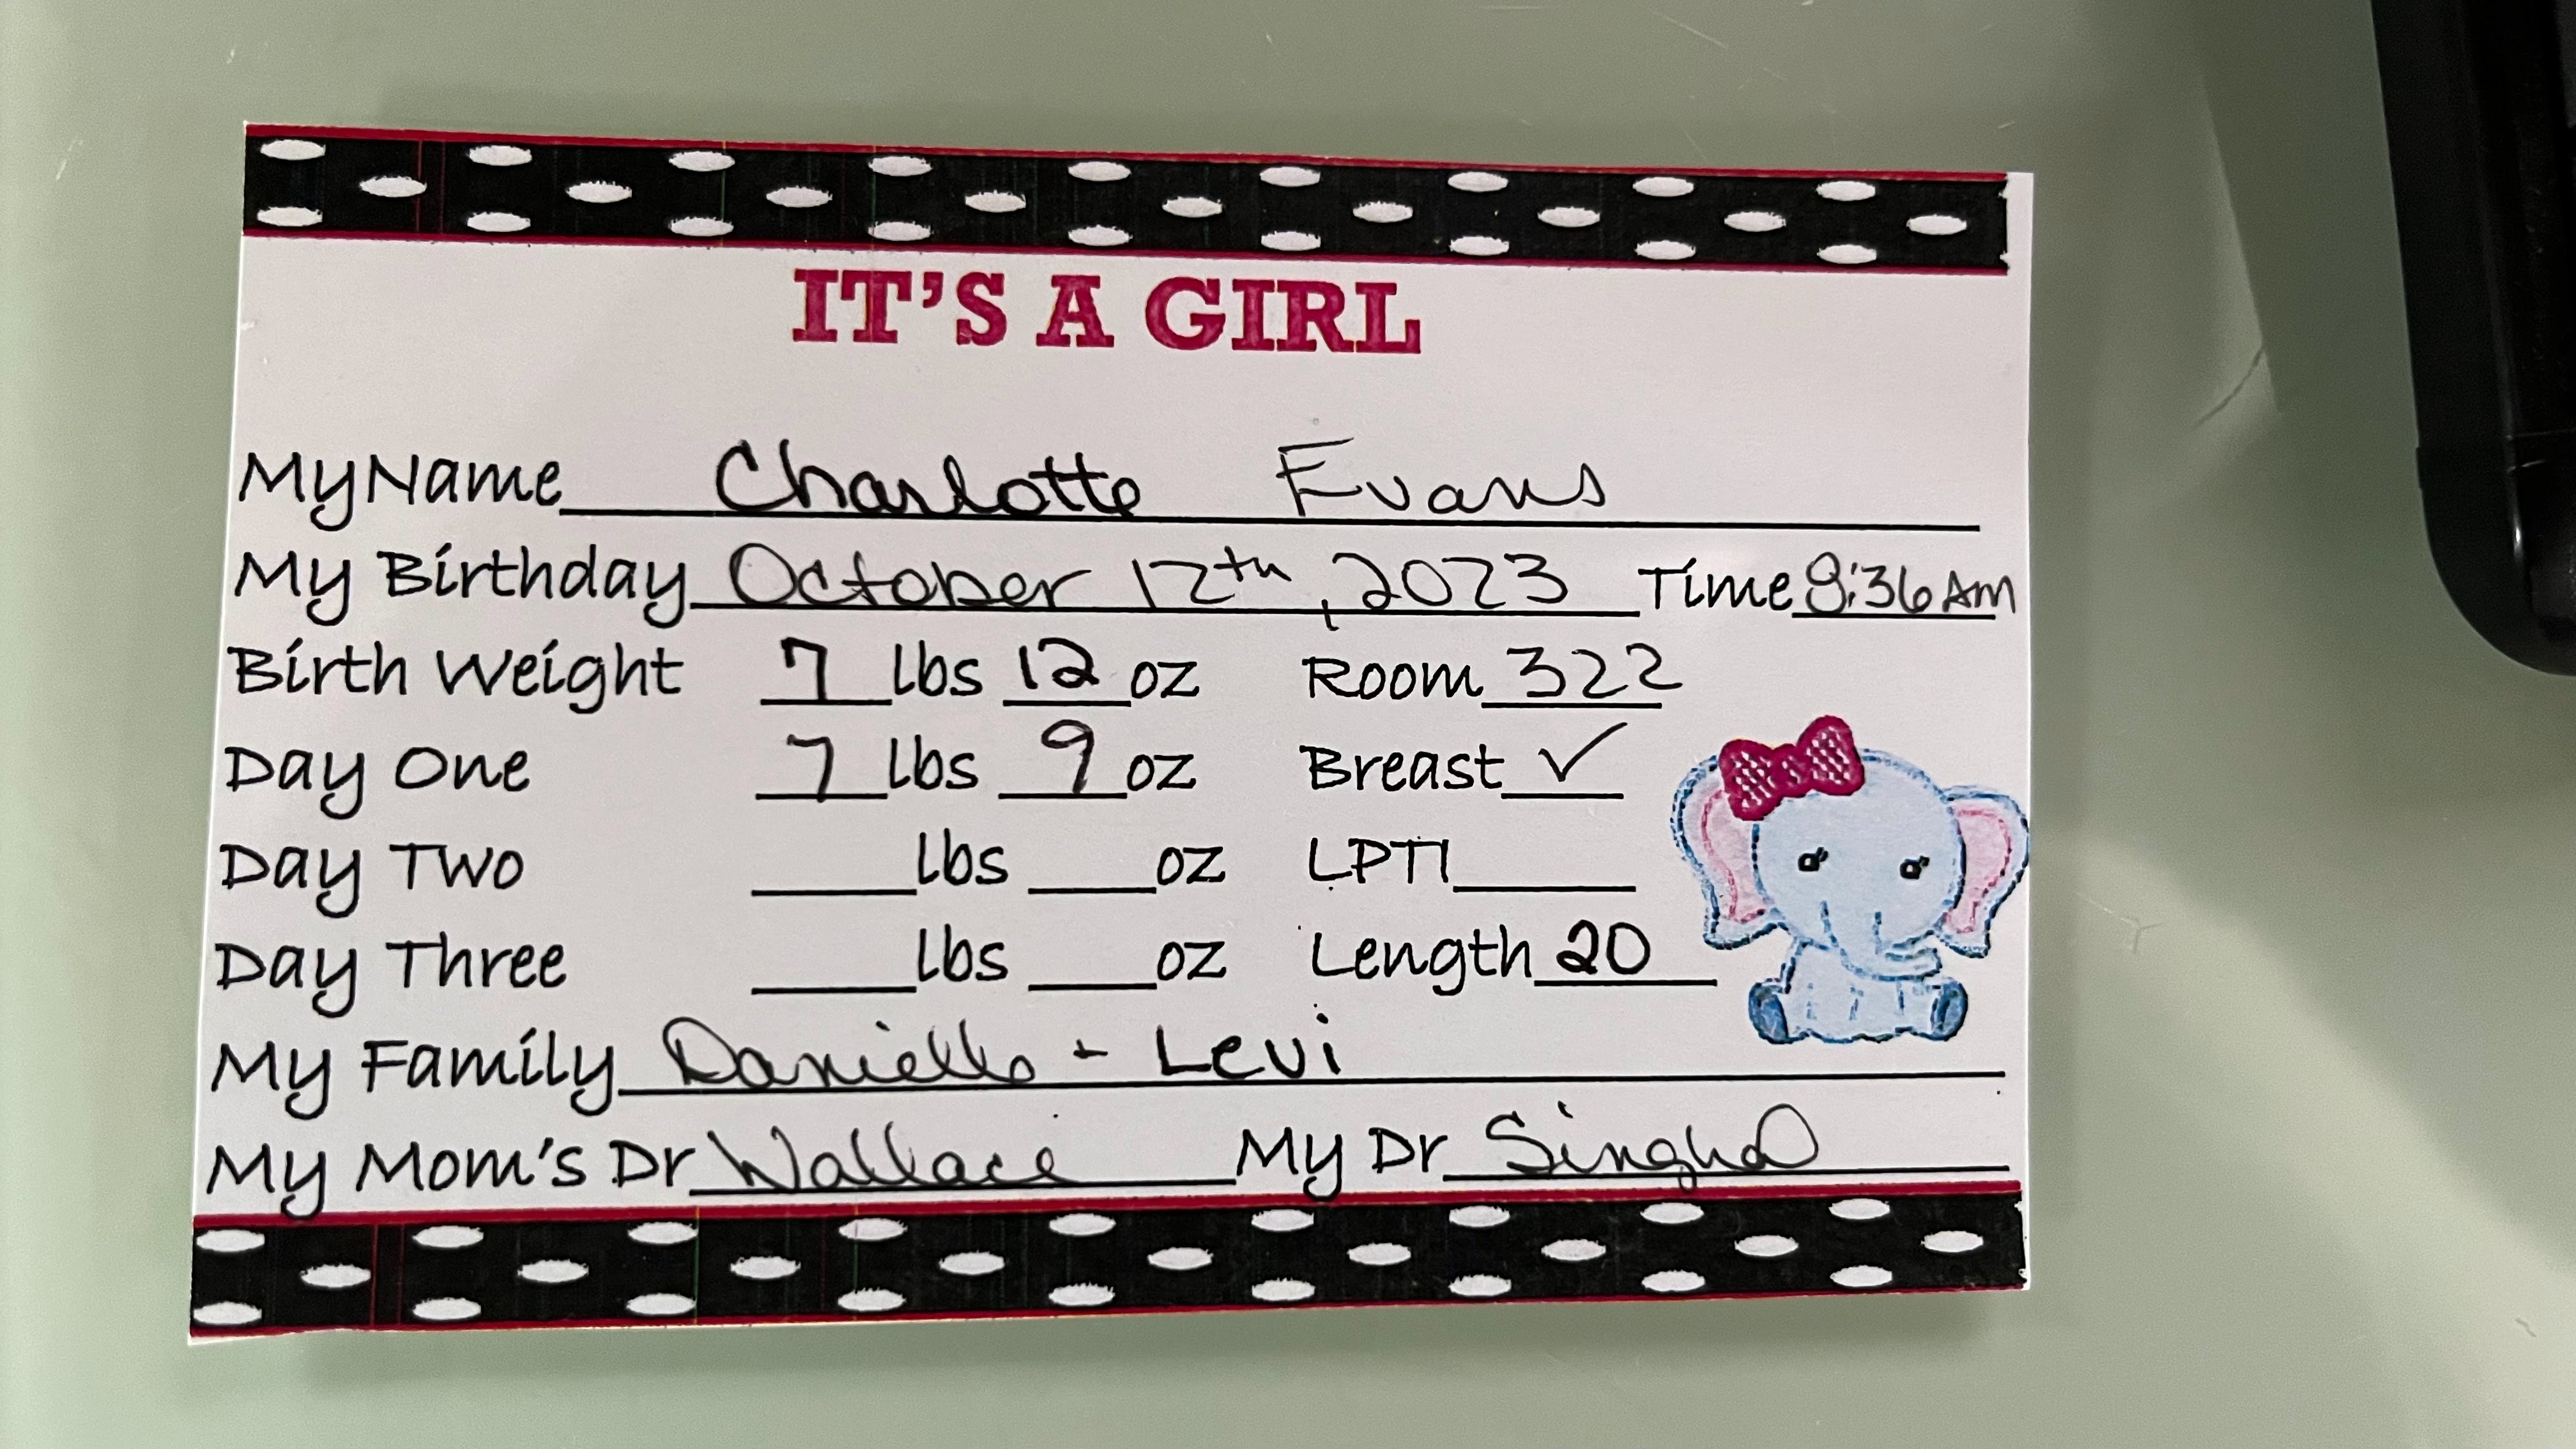 IT'S A GIRL
My Name Charlotte Evans
My Birthday October 12th, 2023 Time 8:36 Am
Birth Weight 7 lbs 12 oz Room 322
Day One 7 lbs 9 oz Breast ✓
Day Two lbs oz LPTI
Day Three lbs oz Length 20
My Family Danielle + Levi
My Mom's Dr Wallace My Dr Singhal